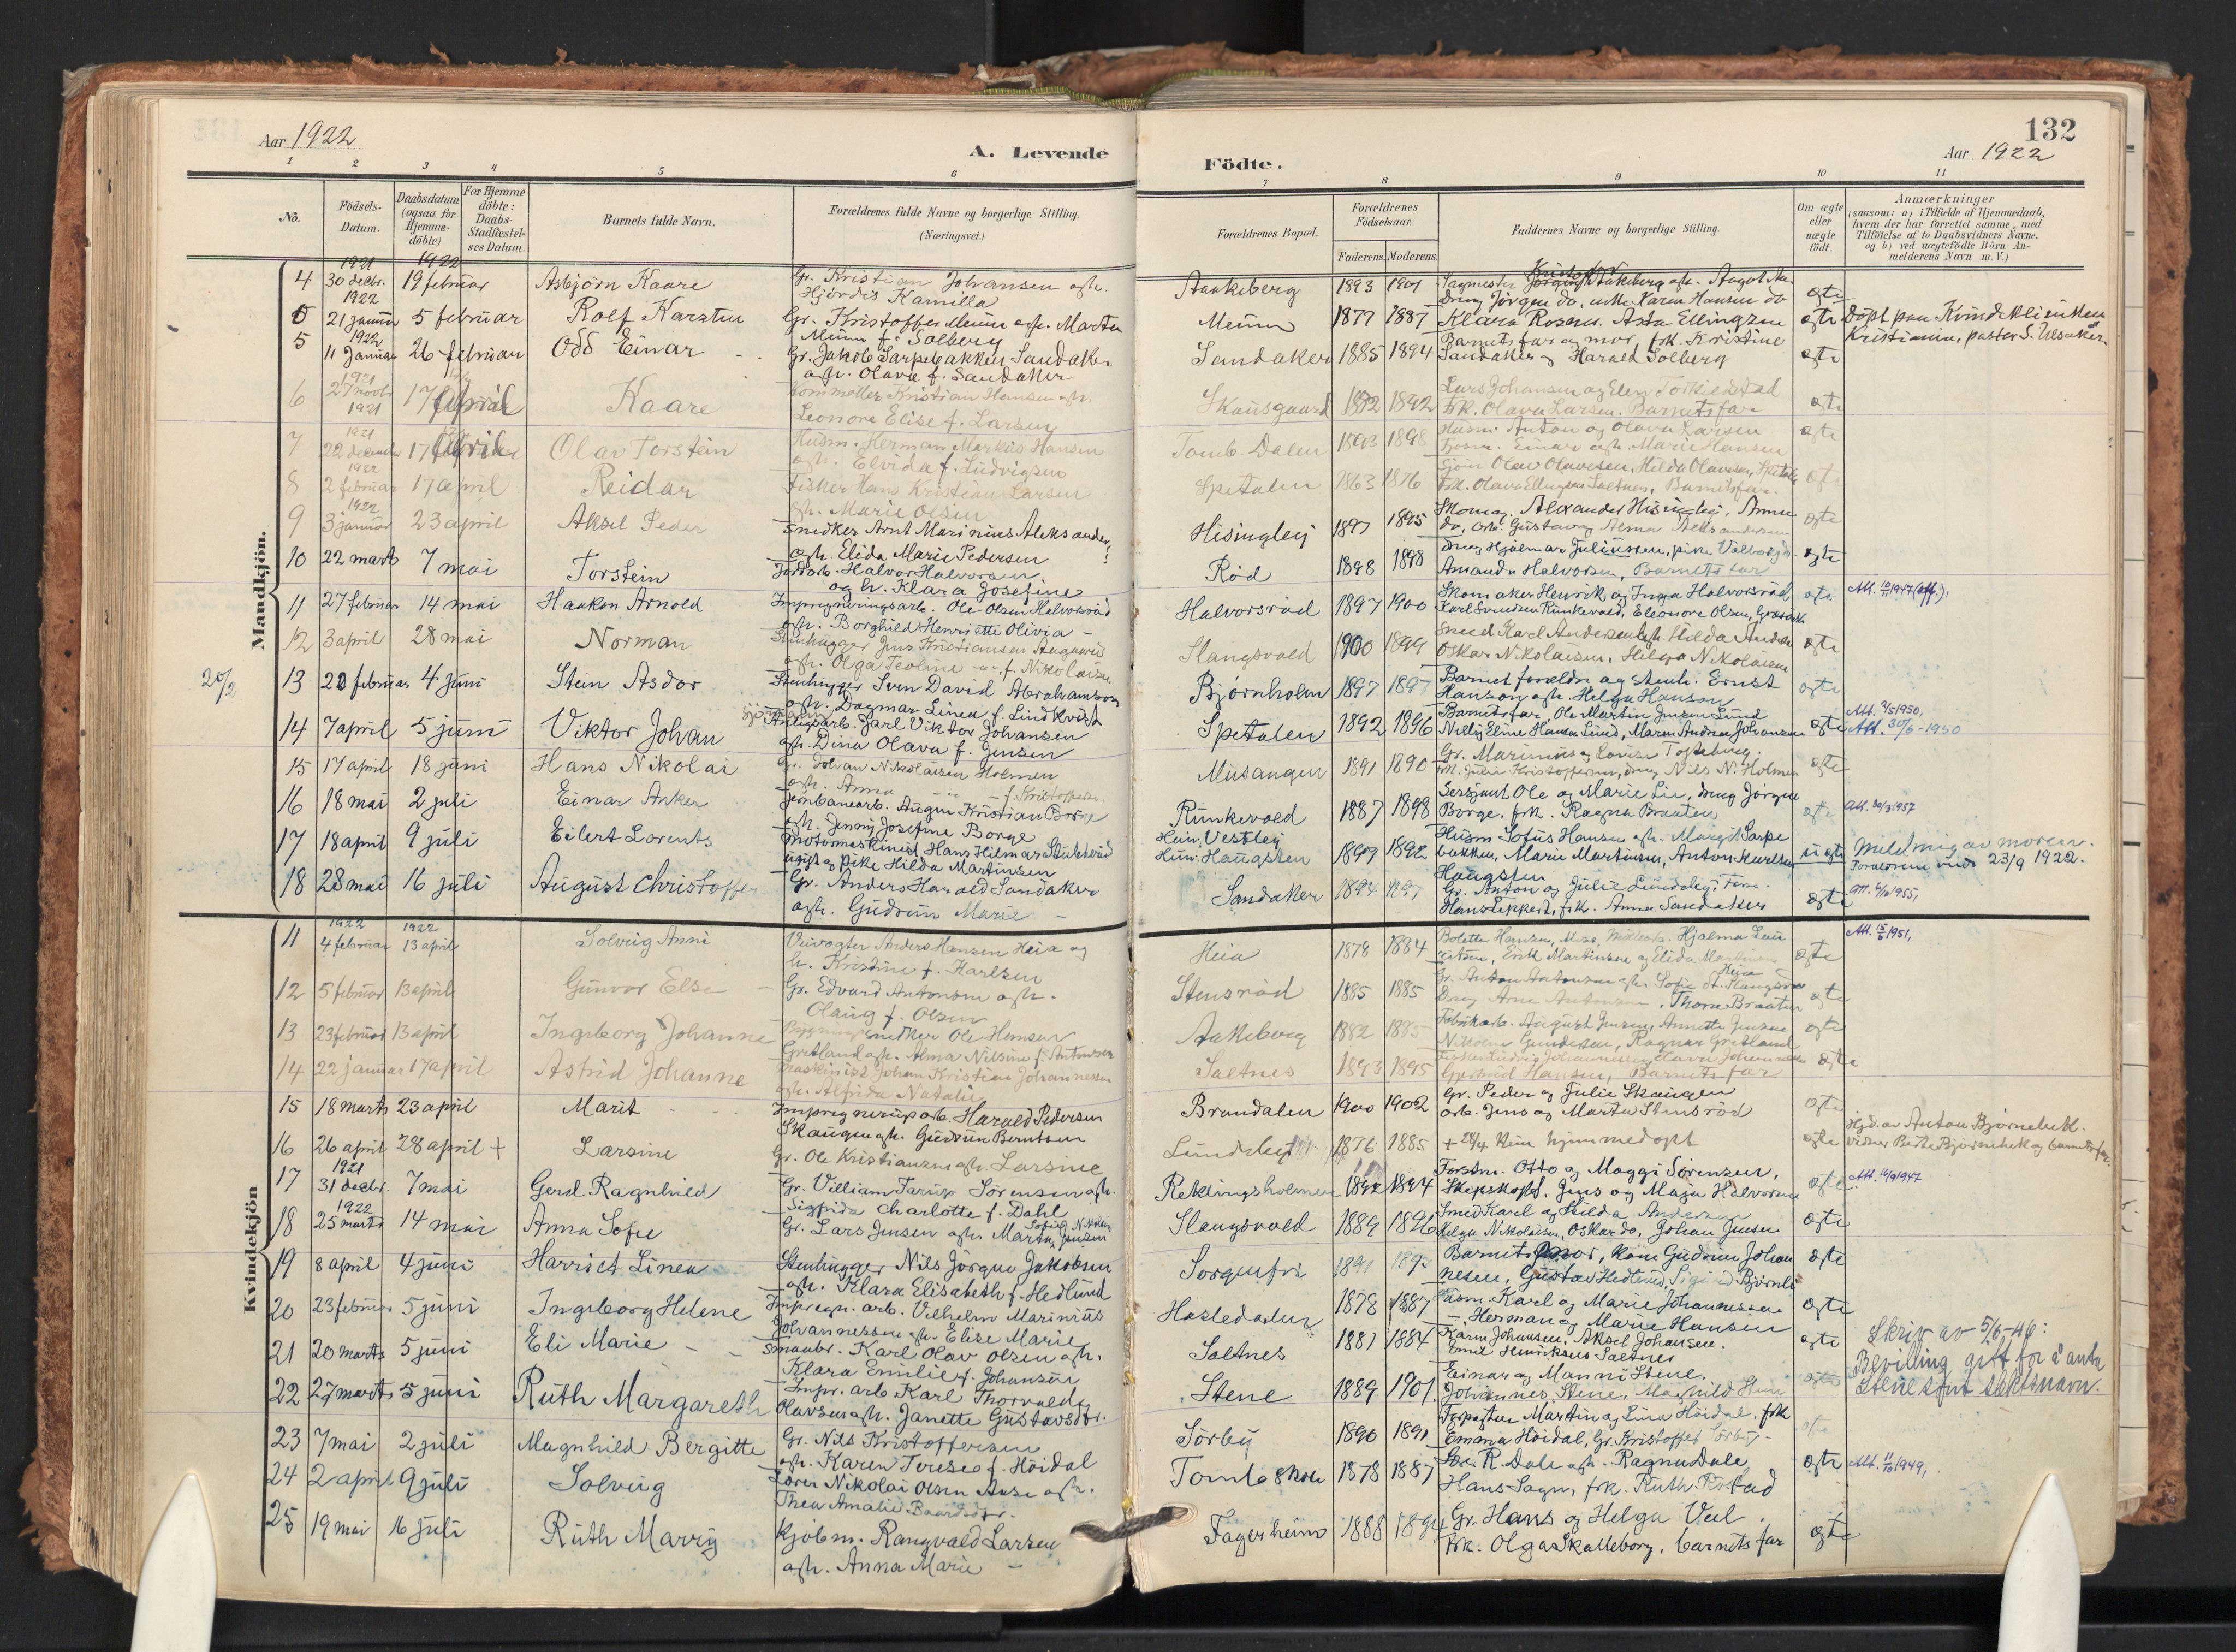 Aar 1922
A. Levende
Födte.
132
Aar 1922
1 2 3 4 5 6 7 8 9 10 11
No.
Födsels-
Datum.
Daabsdatum
(ogsaa for
Hjemme-
döbte)
For Hjemme
döbte:
Daabs-
Stadfæstel-
ses Datum.
Barnets fulde Navn.
Forældrenes fulde Navne og borgerlige Stilling.
(Næringsvei.)
Forældrenes Bopæl.
Forældrenes
Födselsaar.
Faderens. Moderens.
Faddernes Navne og borgerlige Stilling.
Om ægte
eller
uægte
födt.
Anmærkninger
(saasom: a) i Tilfælde af Hjemmedaab,
hvem der har forrettet samme, med
Tilföielse af to Daabsvidners Navne,
og b) ved uægtefödte Börn An-
melderens Navn m. V.)
Mandkjön.
1921 1922
4 30 decbr. 19 februar Asbjörn Kaare Gr. Kristian Johansen og h.
Hjördis Kamilla
Aaakeberg 1893 1901 ægte
1922
21 januar 5 februar Rolf Karsten Gr. Kristoffer Meum og h. Marta
Meum f. Solberg
Meum 1877 1887 Klara Rosnes. Asta Ellingsen ægte Döpt paa Kvindeklinikken
Kristiania, pastor S. Ulsaker.
1922
5 11 januar 26 februar Odd Einar Gr. Jakob Sarpebakken Sandaker
og h. Olava f. Sandaker
Sandaker 1885 1894 Barnets far og mor, frk. Kristine
Sandaker og Harald Solberg ægte
1921
6 27 novbr 17 april Kaare Kommöller Kristian Hansen og h.
Leonore Elise f. Larsen
Skausgaard 1892 1892 Lars Johansen og Elen Torkelstad
frk. Olava Larsen. Barnets far ægte
1921
7 22 decembr 17 april Olav Torstein Husm. Herman Markus Hansen
og h. Elvida f. Ludvigsen
Tomb Dalen 1893 1898 Husm. Anton og Olava Karsen
Einar og h. Marie Hansen ægte
1922
8 2 februar 17 april Reidar Fisker Hans Kristian Larsen
og h. Marie Olsen
Spetalen 1863 1876 Sjöm Olav Olavesen, Hilda Olavesen, Spetalen
frk. Olava Ellingsen Saltnes, Barnets far. ægte
1922
9 3 januar 23 april Aksel Peder Snedker Arnt Marinius Aleksander
og h. Elida Marie Pedersen
Hisingley 1897 1895 Skomag. Alexander Hisingley, Anna
do, arb. Gustav og Alma Aleksandersen ægte
10 22 marts 7 mai Torstein Jordarb. Halvor Halvorsen
og h. Klara Josefine
Röd 1898 1898 Dreng Hjalmar Juliussen, pike Valborg
Amanda Halvorsen, Barnets far ægte
11 27 februar 14 mai Haakon Arnold Impregneringsarb. Ole Olsen Halvorsröd
og h. Borghild Henriette Olivia
Halvorsröd 1897 1900 Skomaker Henrik og Inga Halvorsröd
Karl Svendsen Runkevold, Eleonore Olsen, ægte
12 3 april 28 mai Norman Stenhugger Jens Kristiansen
og h. Olga Teoline f. Nikolaisen
Slangsvold 1900 1899 Smed Karl Andersen og h. Hilda Andersen
Oskar Nikolaisen, Helga Nikolaisen ægte
20/2
13 20 februar 4 juni Sten Asdor Stenhugger Sven David Abrahamson
og h. Dagmar Linea f. Lindkvist
Björnholm 1897 1897 Barnets foreldre og stenh. Ernst
Hanson og h. Helga Hanson ægte
14 7 april 5 juni Viktor Johan Anlegsarb. Jarl Viktor Johansen
og h. Dina Olava f. Jensen
Spetalen 1892 1896 Barnets far, Ole Martin Jensen Lund
Nelly Eline Hansen Lund, Maren Andrea Johansen ægte Att. 30/6-1950
15 17 april 18 juni Hans Nikolai Gr. Johan Nikolaisen Holmen
og h. Anna f. Kristoffersen
Musangen 1891 1890 Gr. Marinius og Lovise Torpeberg.
frk. Julie Kristoffersen, dreng Nils N. Holmen ægte
16 18 mai 2 juli Einar Anker Jernbanearb. August Kristian Borge
og h. Jenny Josefine Borge
Runkevold 1887 1898 Sersjant Ole og Marie Lie, dreng Jörgen
Borge, frk. Ragna Braaten ægte Att. 30/3 1957
17 18 april 9 juli Eilert Lorents Motormaskinist Hans Hilmar
ugift og pike Hilda Martinsen
Han: Vestley
Hun: Haugsten 1899 1892 Husm Lotus Hansen og h. Margit Sarpe
bakken, Marie Martinsen, Anton Karlsen
Haugsten uægte Melding av moren.
23/9 1922.
18 28 mai 16 juli August Christoffer Gr. Anders Harald Sandaker
og h. Gudrun Marie
Sandaker 1894 1897 Gr. Anton og Julie Lundeley,
frk. Anna Sandaker ægte
Kvindekjön
1922 1922
11 4 februar 13 april Solveig Anni Veivogter Anders Hansen Heia og
h. Kristine f. Karlsen
Heia 1878 1884 Bolette Hansen, Moss, Hjalmar Lau
ritsen, Erik Martinsen og Elida Martinsen
Heia ægte Att. 15/6 1951,
12 5 februar 13 april Gunvor Else Gr. Edvard Antonsen og h.
Olaug f. Olsen
Stensröd 1885 1885 Gr. Anton Antonsen og h. Sofie
Dreng Arne Antonsen, Thora Braaten ægte
13 23 februar 13 april Ingeborg Johanne Bygningssnedker Ole Hansen
Gretland og h. Alma Nilsine f. Antonsen
Aakeberg 1882 1885 Fabrikarb. August Jensen, Annette Jensen
Nikoline Gundersen, Ragnar Gretland ægte
14 22 januar 17 april Astrid Johanne Maskinist Johan Kristian Johannessen
og h. Alfrida Natalie
Saltnes 1893 1895 Fisker Ludvig Johannessen, Olava Johannessen
Hansen, Barnets far ægte
15 18 marts 23 april Marit Impregneringsarb. Harald Pedersen
Skaugen og h. Gudrun Berntsen
Brandalen 1900 1902 Gr. Peder og Julie Skaugen
arb. Jens og Marta Stensröd ægte
16 26 april 28 april + Larsine Gr. Ole Kristiansen og h. Larsine
Lundeley 1876 1885 + 28/4 kun hjemmedöpt ægte Hjd. av Anton Björnebek.
vidner Berte Björnebek og barnets far.
1921
17 31 decbr. 7 mai Gerd Ragnhild Gr. Villiam Tarup Sörensen og h.
Sigfrida Charlotte f. Dahl
Reklingsholmen 1892 1894 Forstm. Otto og Maggi Sörensen,
Skipskapt. Jens og Maja Halvorsen ægte Att. 16/9 1947
1922
18 25 marts 14 mai Anna Sofie Gr. Lars Jensen og h. Marta Jensen
Slangsvold 1889 1896 Smed Karl og Hilda Andersen
Helga Nikolaisen, Oskar do, Johan Jensen ægte
19 8 april 4 juni Harriet Linea Stenhugger Nils Jörgen Jakobsen
og h. Klara Elisabeth f. Hedlund
Sorgenfri 1891 Barnets mor, kone Gudrun Johan
nesen, Gustav Hedlund, Sigrid Björnli ægte
20 23 februar 5 juni Ingeborg Helene Impregn. arb. Vilhelm Marinius
Johannessen og h. Elise Marie
Hasledalen 1878 1887 Husm. Karl og Marie Johannessen
Herman og Marie Hansen ægte
21 20 marts 5 juni Eli Marie Smaabr. Karl Olav Olsen og h.
Klara Emilie f. Johansen
Saltnes 1881 1884 Karen Johansen, Aksel Johansen.
Emil Henriksen Saltnes ægte
22 27 marts 5 juni Ruth Margareth Impr. arb Karl Thorvald
Olavsen og h. Janette Gustavsdtr.
Stene 1889 1901. Einar og Manni Stene.
Johannes Stene, Magnhild Stene ægte Skriv av 5/6-46:
Bevilling gitt for å anta
Stene som slektsnavn.
23 7 mai 2 juli Magnhild Bergitte Gr. Nils Kristoffersen
og h. Karen Terese f. Höidal
Sörby 1890 1891 Forpagter Martin og Lina Höidal, frk
Emma Höidal, Gr. Kristoffer Sörby. ægte
24 2 april 9 juli Solveig Lærer Nikolai Olsen Aase og h.
Thea Amalie Baardsdtr.
Tomb skole 1878 1887 R. Dale og h. Ragna Dale,
Hans Sagen, frk. Ruth Röstad ægte Att. 11/10 1949,
25 19 mai 16 juli Ruth Marry Kjöbm. Rangvald Larsen
og h. Anna Marie
Fagerheim 1888 1894 Gr. Hans og Helga Veel
frk. Olga Skalleborg, barnets far ægte